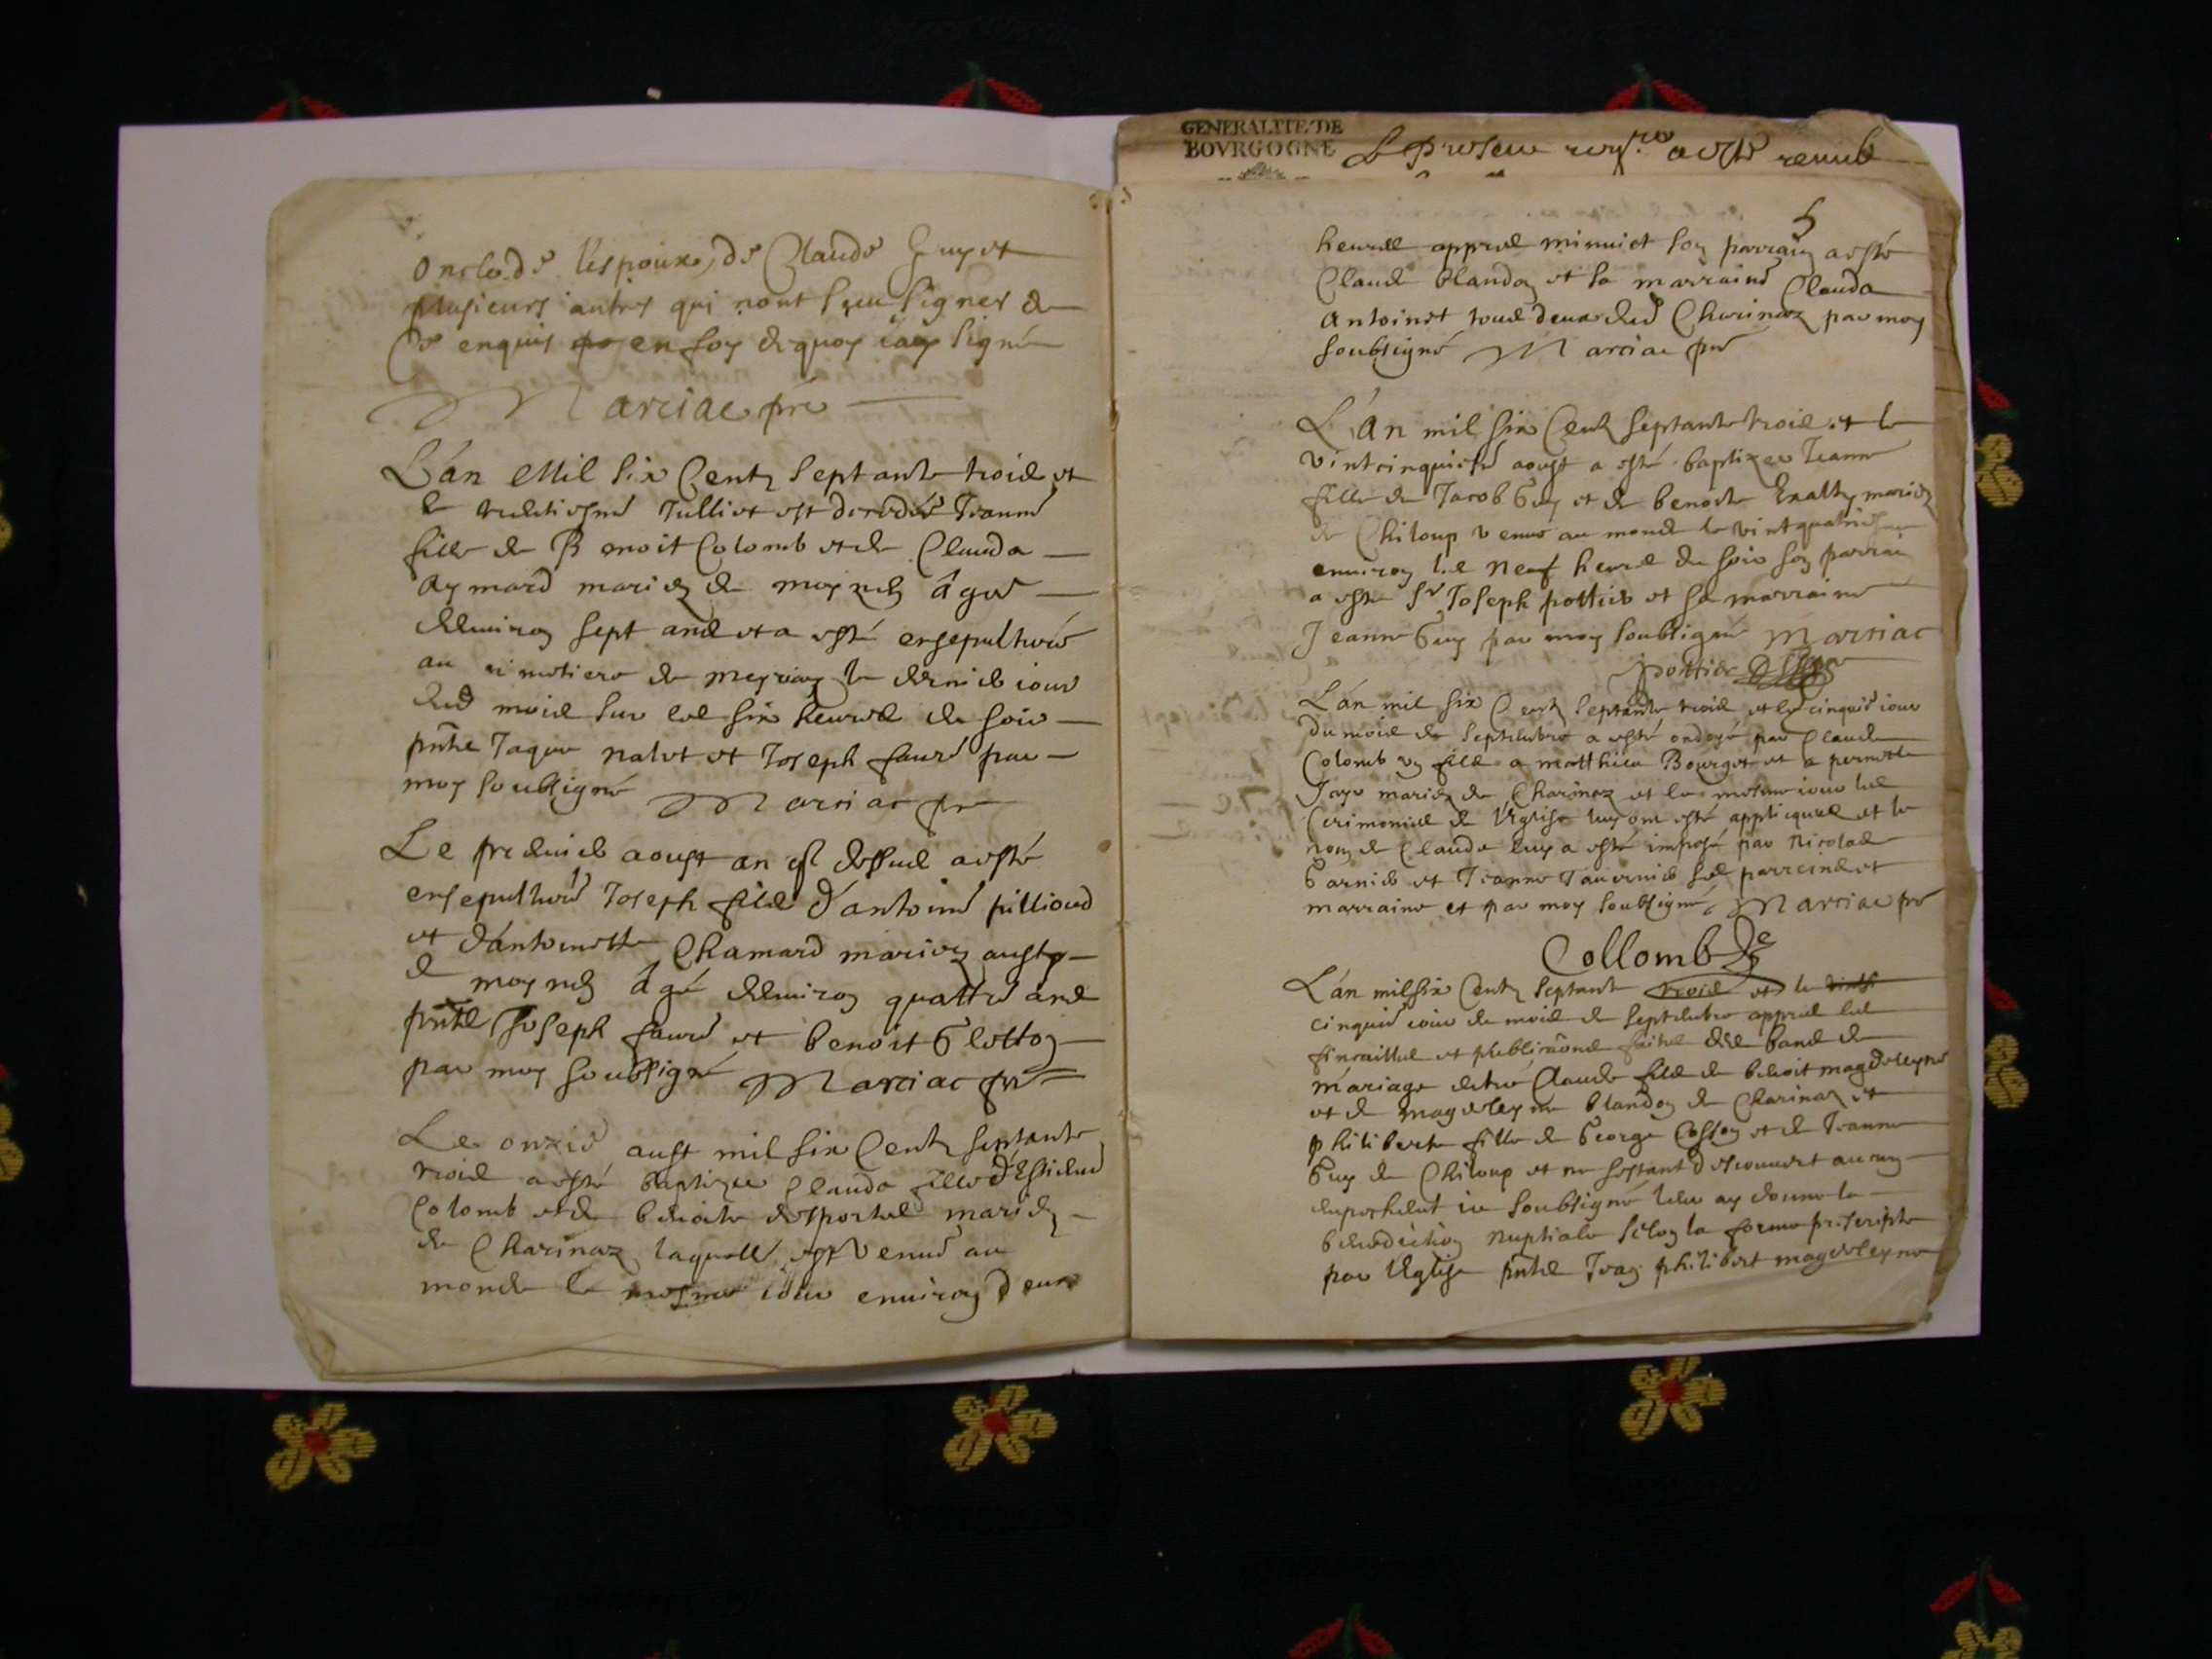 oncle de l'espoux, de Claude Guy et
plusieurs autres qui nont sceu signer de
ce enquis en foy dequoy iay signé
Marciac pre
L'an Mil six Centz septante troie et
le Julliet est decedée Jeanne
fille de Benoit Colomb et de Clauda
Aymard mariez de âgee
denviron sept ans et a esté ensepulturée
au cimetiere de le dernier iour
dud mois sur les six heures du soir
pnts Jaque nalet et Joseph faure par
moy soubsigné Marciac pre
Le premier aoust an q dessus a esté
ensepulturé Joseph fils d'antoine pillioud
et dantoinette Chamard mariez aussy
de âgé denviron quattre ans
pnts Joseph faure et benoit Gletton
par moy soubsigné Marciac pre
Le onzie aust mil six Centz septante
troie a esté baptizee Clauda fille d'Estienne
Colomb et de benoite desportes mariez
de Charinaz laquelle est venue au
monde le mesme iour environ deux
GENERALITE DE
BOVRGOGNE Le present a esté
5
heures appres minuict son parrain a esté
Claude blandon et sa marraine Clauda
Antoinet tous deux dud Charinaz par moy
soubsigné Marciac pre
L'An mil six Centz septante troie et le
vintcinquie aoust a esté baptizee Jeanne
fille de Jacob Guy et de benoite mariez
de Chiloup venue au monde le vintquatrie
environ les neuf heures du soir son parrain
a esté Sr Joseph pottier et sa marraine
Jeanne Guy par moy soubsigné Marciac
pottier
L'an mil six Centz septante troie et le cinquie iour
du mois de septembre a esté ondoyé par Claude
Colomb un fils a matthieu Bourget et a pernette
mariez de Charinaz et le mesme iour les
Cerimonies de l'eglise luy ont esté applicquees et le
nom de Claude luy a esté imposé par Nicolas
Garnier et Jeanne Tavernier ses parreins et
marraine et par moy soubsigné Marciac pre
Collomb
L'an mil six Centz septant troie et le
cinquie iour du mois de septembre appres les
fincailles et publicaons faites des bans de
mariage entre Claude fils de benoit magdeleyne
et de magdeleyne blandon de Charinaz et
philiberte fille de George Cosson et de Jeanne
Guy de Chiloup et ne sestant descouvert aucun
empeschement ie soubsigné leur ay donne la
benediction nuptiale selon la forme prescripte
par l'eglise pnts Jean philibert magdeleyne